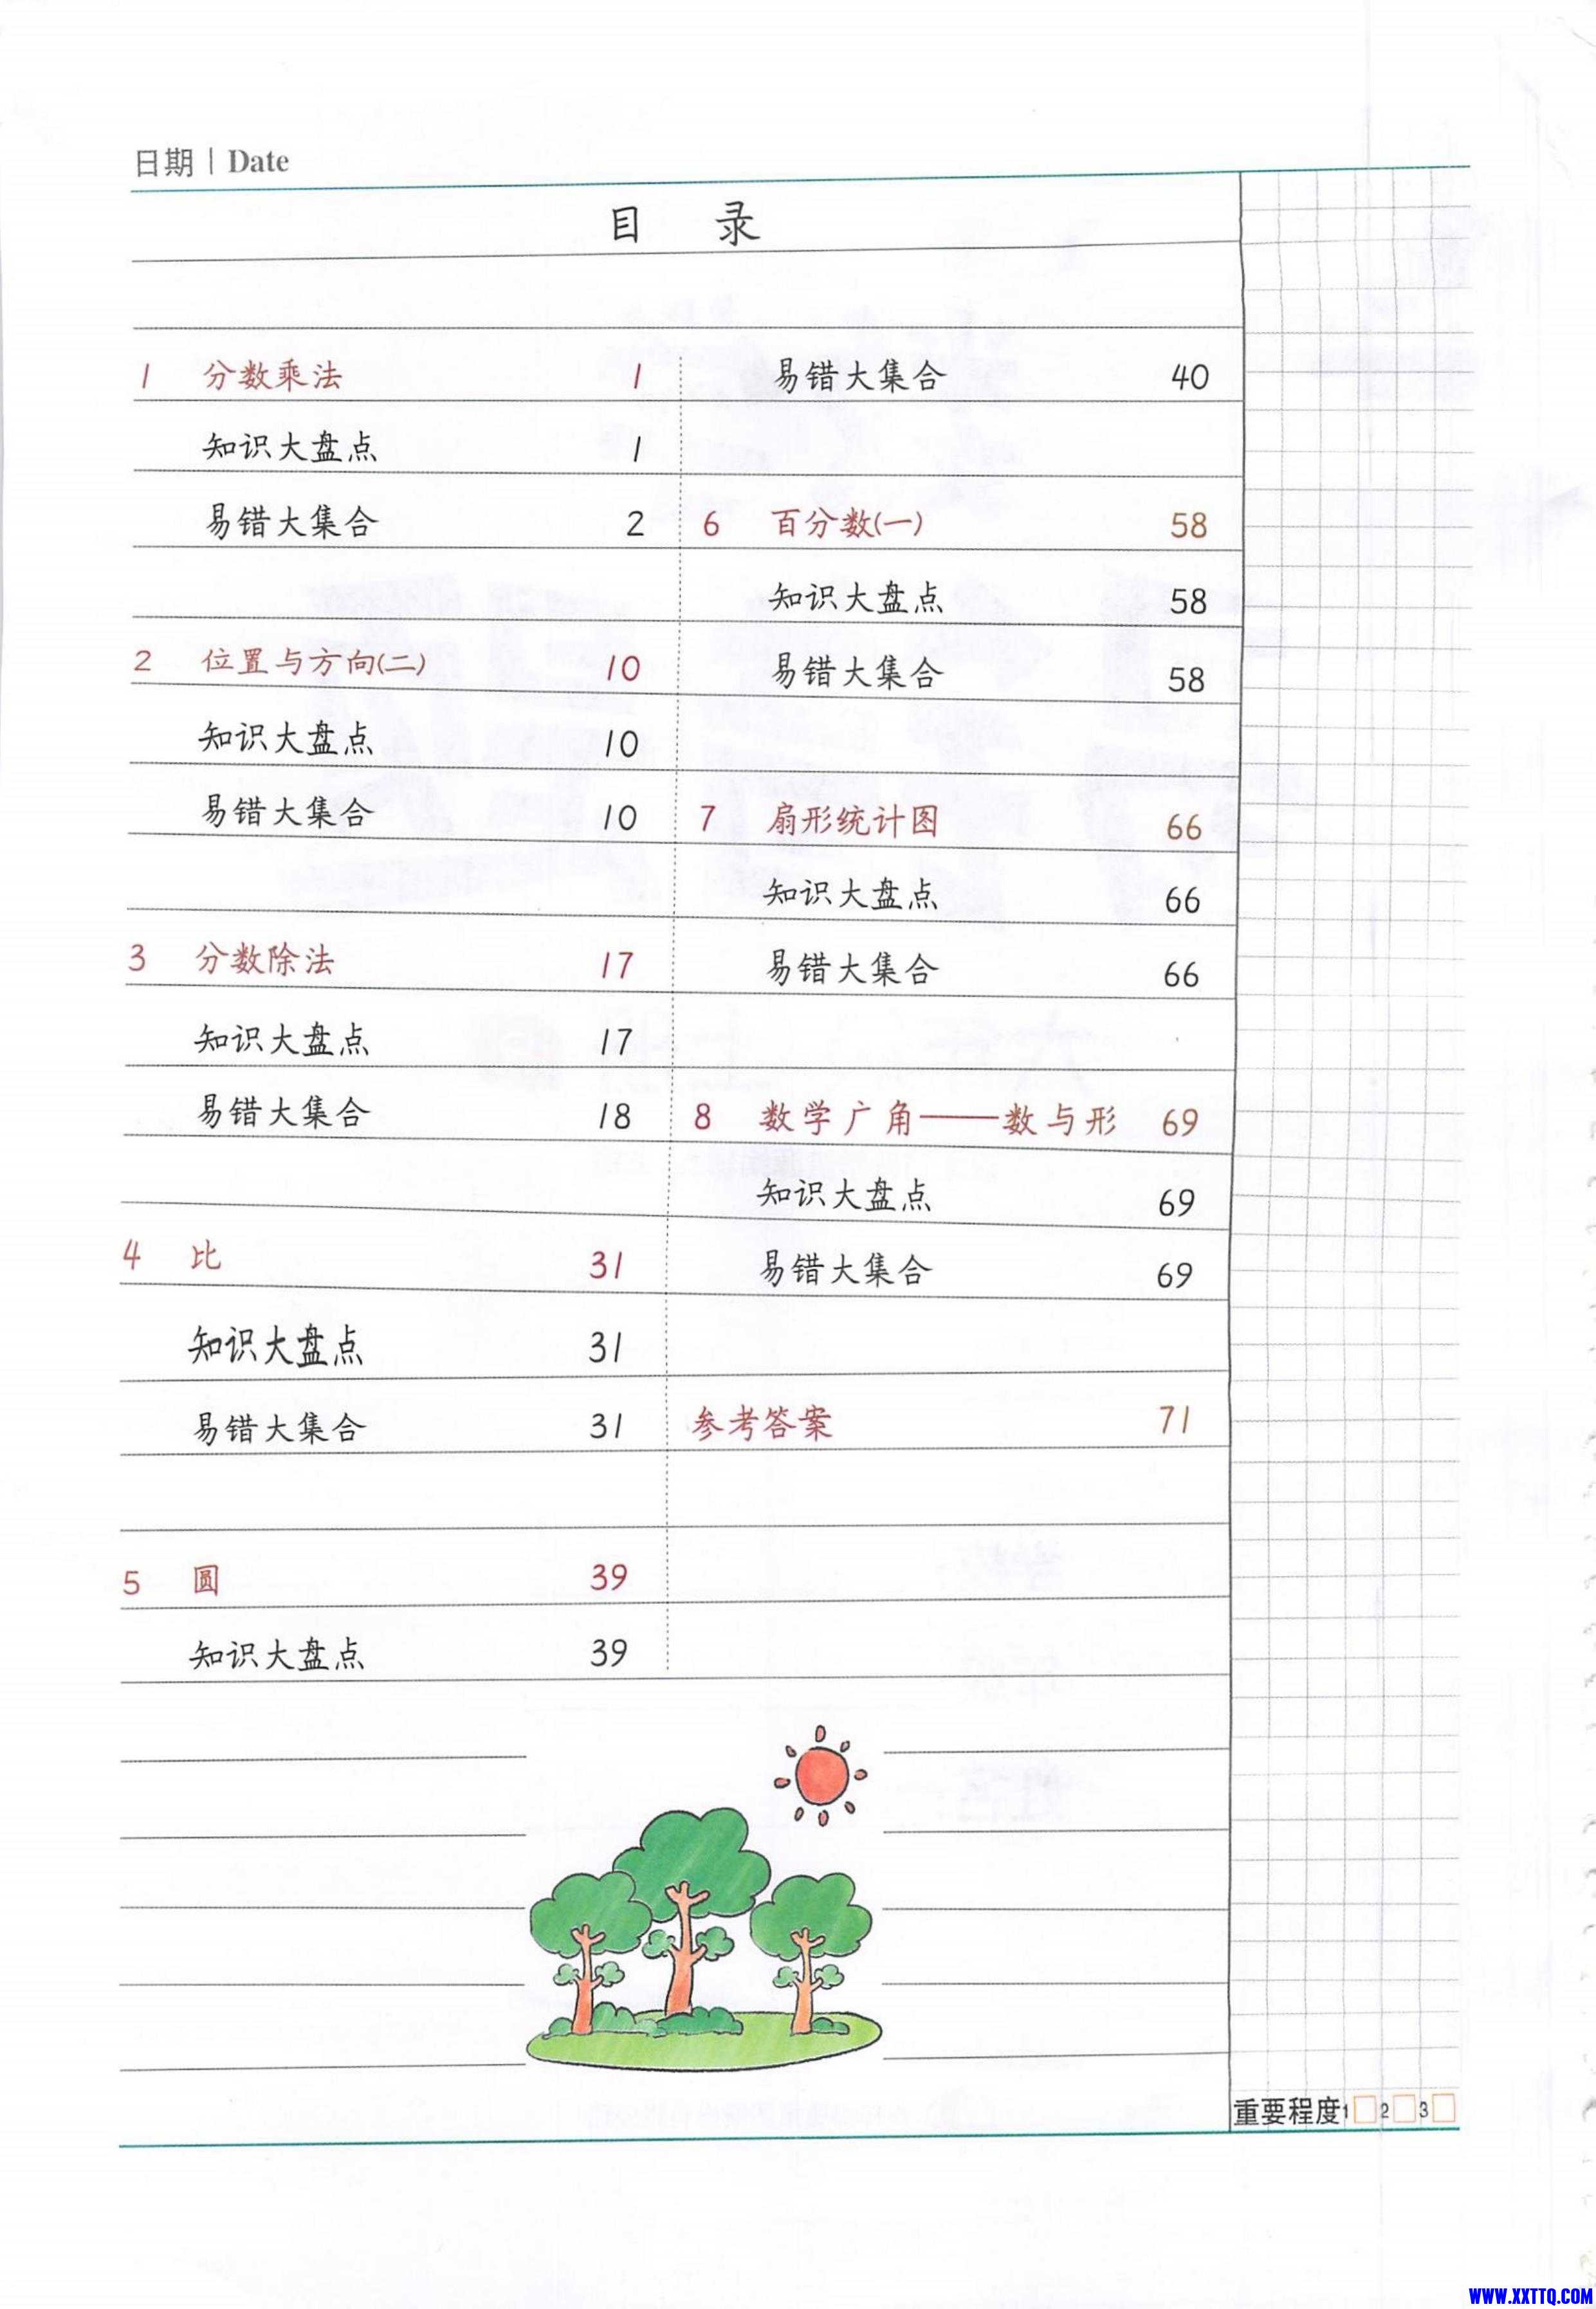 日期 | Date
目 录
1 分数乘法 1
知识大盘点 1
易错大集合 2
2 位置与方向(二) 10
知识大盘点 10
易错大集合 10
3 分数除法 17
知识大盘点 17
易错大集合 18
4 比 31
知识大盘点 31
易错大集合 31
5 圆 39
知识大盘点 39
易错大集合 40
6 百分数(一) 58
知识大盘点 58
易错大集合 58
7 扇形统计图 66
知识大盘点 66
易错大集合 66
8 数学广角——数与形 69
知识大盘点 69
易错大集合 69
参考答案 71
重要程度1 2 3
WWW.XXTTQ.COM